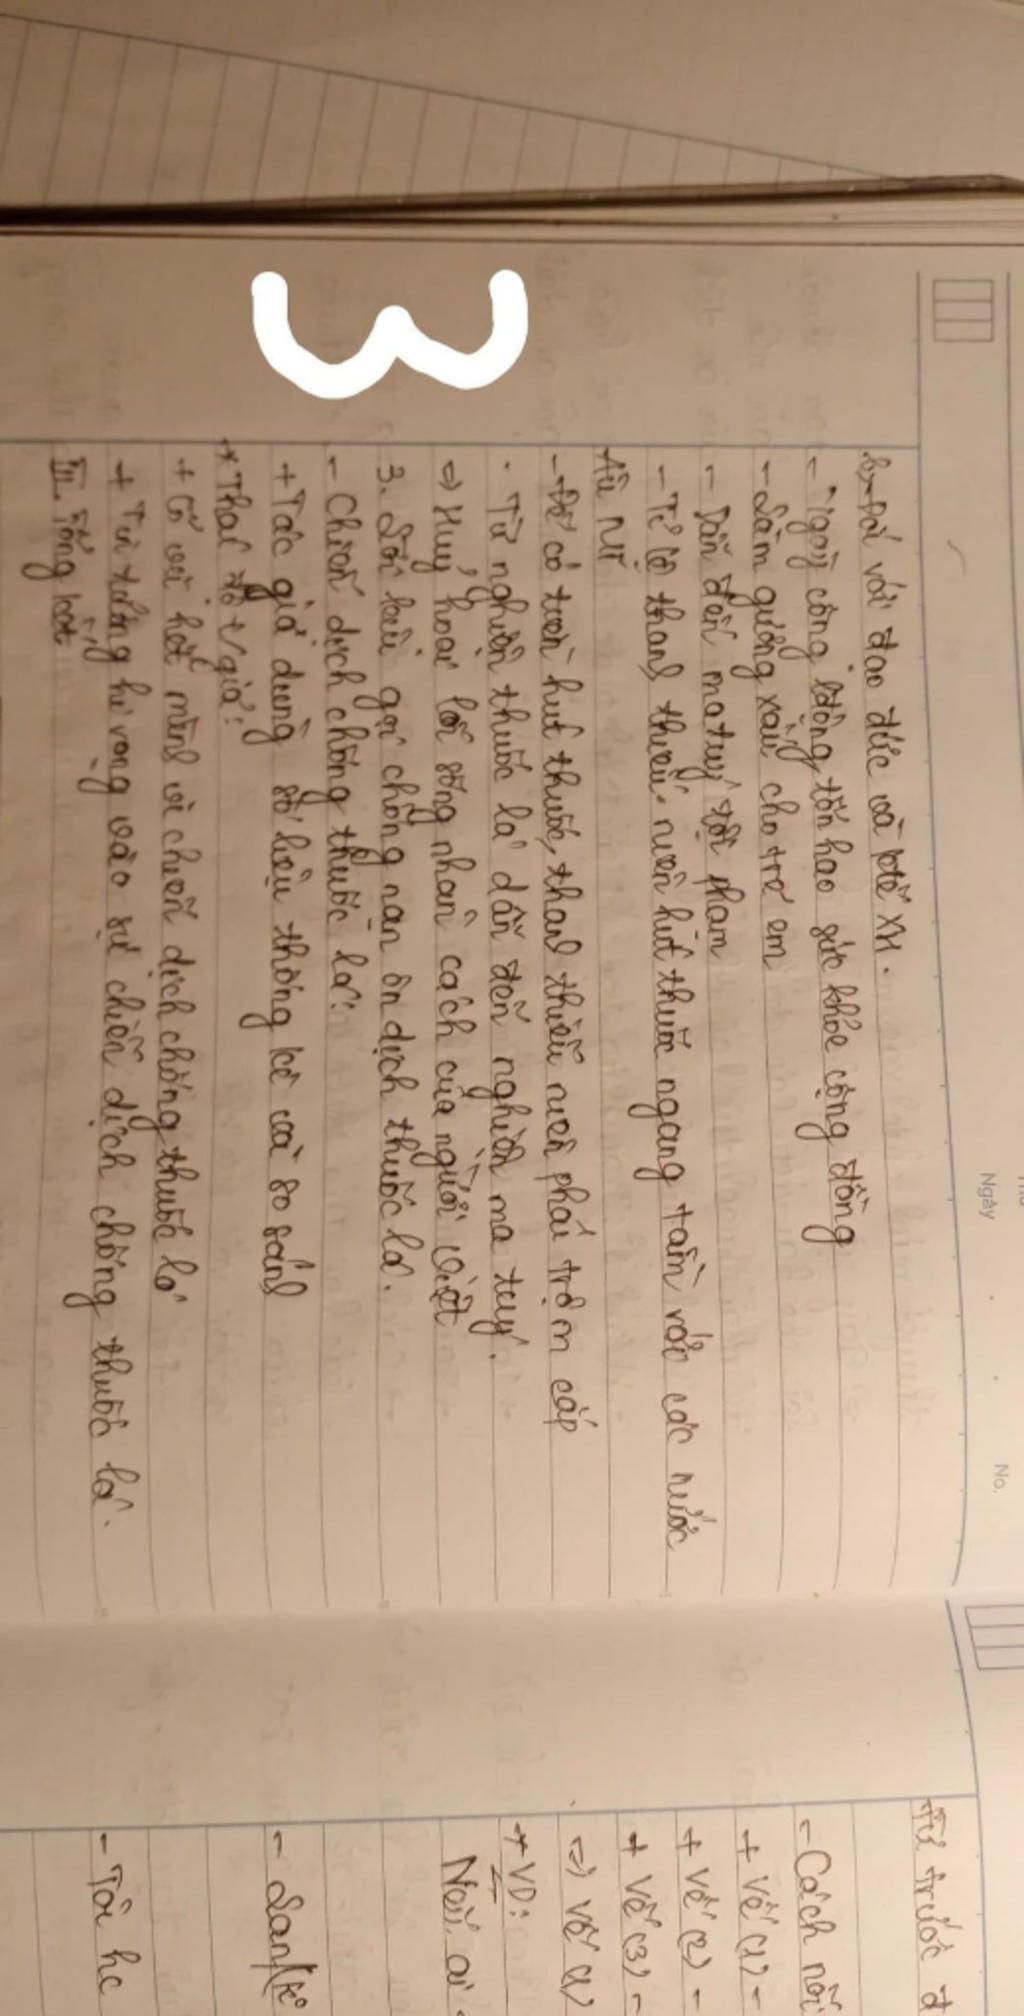 Ngày
No.
3
b, Đối với đạo đức và ktế XH.
- Ngày công lđộng, tổn hao sức khỏe cộng đồng
- Làm gương xấu cho trẻ em
- Dẫn đến ma tuý tội phạm
- Tỉ lệ thanh thiếu niên hút thuốc ngang tầm với các nước
Âu Mĩ
- Để có tiền hút thuốc, thanh thiếu niên phải trộm cắp
. Từ nghiện thuốc lá dẫn đến nghiện ma tuý.
=> Huỷ hoại lối sống nhân cách của người Việt
3. Lời kêu gọi chống nạn ôn dịch thuốc lá.
- Chiến dịch chống thuốc lá:
+ Tác giả dùng số liệu thống kê và so sánh
* Thái độ t/giả:
+ Cổ vũ hết mình vì chiến dịch chống thuốc lá
+ Tin tưởng hi vọng vào sự chiến dịch chống thuốc lá.
III. Tổng kết
Từ trước đ
- Cách nối
+ Vế (1) -
+ Vế (2) -
+ Vế (3) -
=> Vế (1)
* VD:
Nếu ai
- Tôi hc